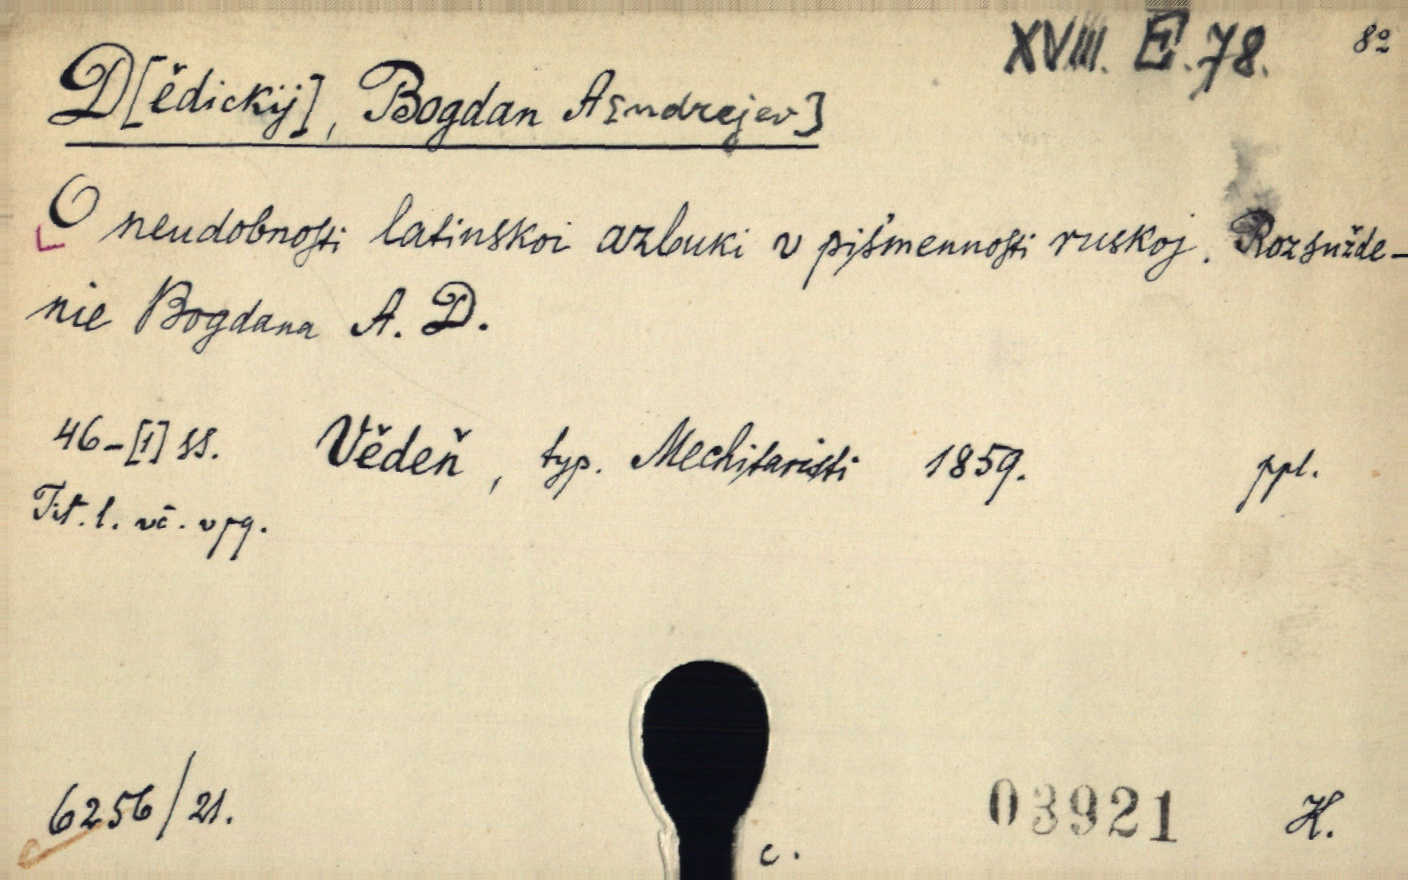 XVIII. E. 78. 8º
D[ědickij], Bogdan A[ndrejev]
O neudobnosti latinskoi azbuki v piśmennosti ruskoj. Rozsužde-
nie Bogdana A. D.
46-[1] ss. Vědeň, typ. Mechitaristi 1859. ppl.
Tit. l. vč. v pg.
6256/21. 03921 K.
c.